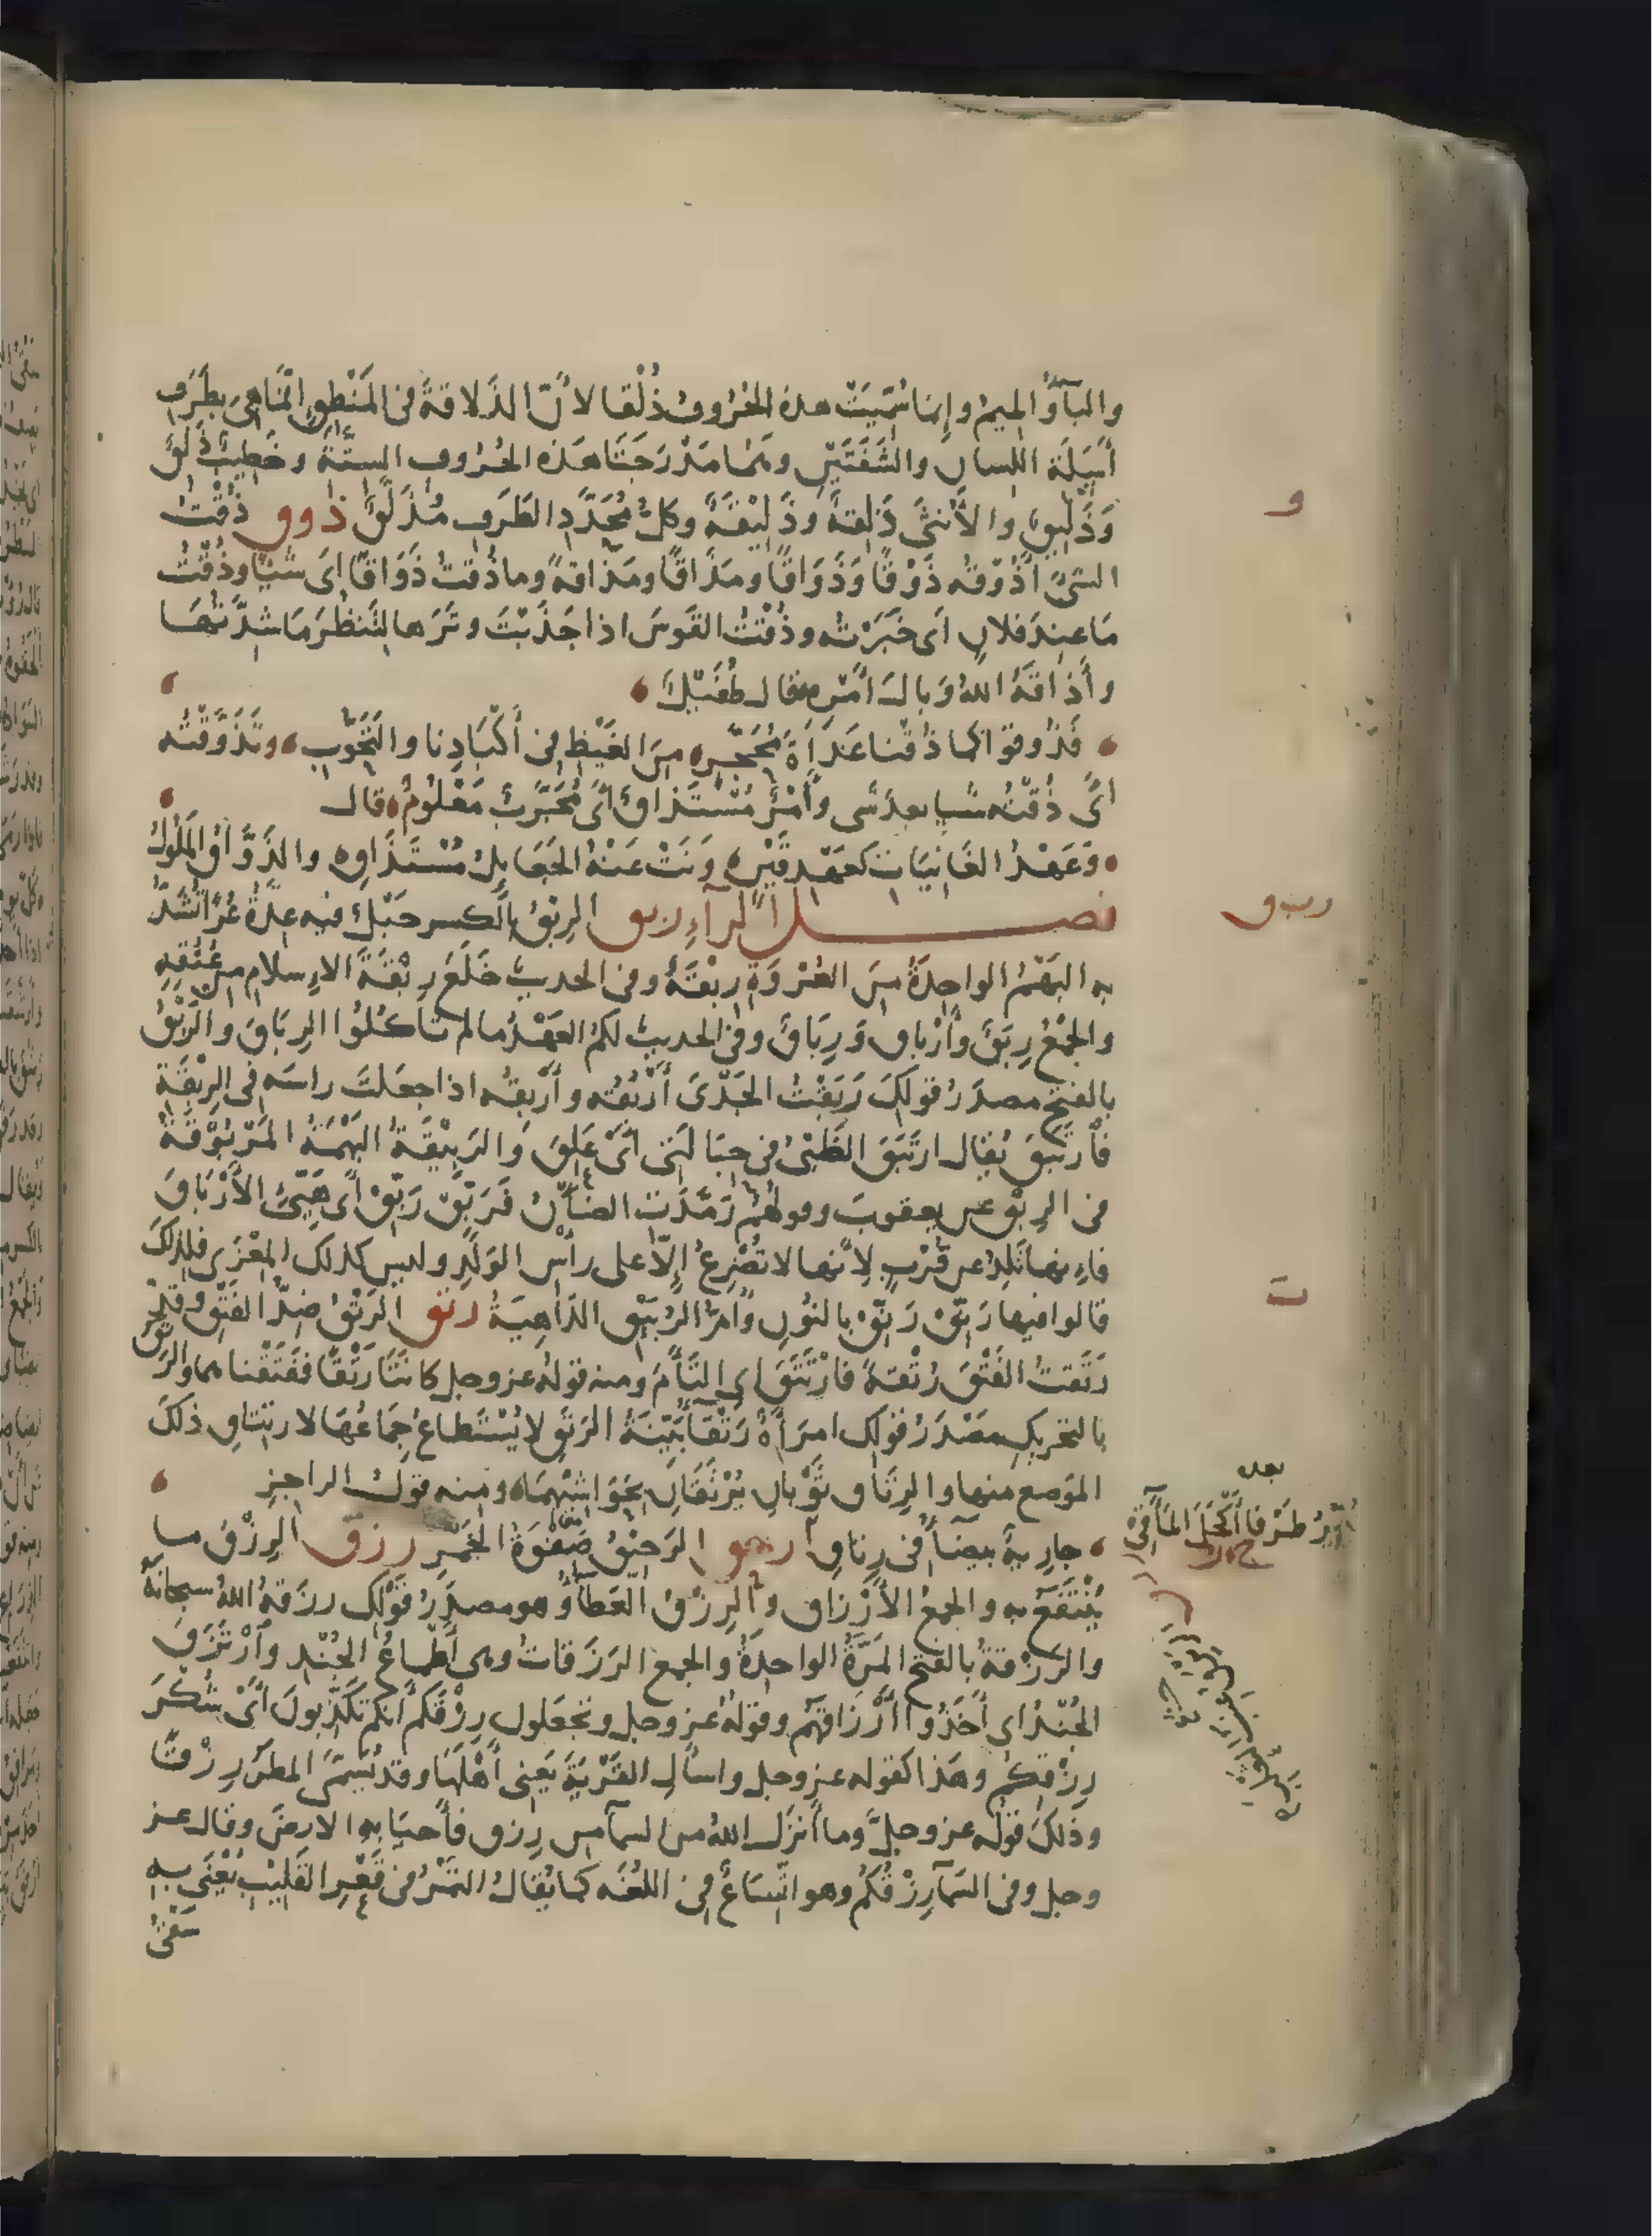 والبآءُ والميمُ وإنما سُمِّيَتْ هذه الحُرُوفُ ذُلْقا لانّ الذَلاقةَ فى المَنْطِقِ انّمَا هِىَ بِطَرَفِ
أَسَلَة اللسان والشَفَتَيْنِ وهُمَا مَدْرَجَتَا هَذه الحُرُوفِ السِتَّةِ وخَطِيبٌ ذَلِقٌ
وَذَلِيقٌ والأُنثَى ذَلِقةٌ وَذَلِيْقَةٌ وكلُّ مُحَدَّدِ الطَرَفِ مُذَلَّقٌ ذوق ذُقْتُ
الشىَّ اذُوقُه ذَوْقًا وَذَوَاقًا ومَذَاقًا ومَذَاقةً وما ذُقتُ ذَوَاقًا اى شَيًا وذُقْتُ
مَا عِندَ فلانٍ اَى خَبَرْتُه وذُقْتُ القَوسَ اذا جَذَبْتَ وتَرَها لِتَنظُرَ مَا شِدَّتُهَا
وأَذَاقَهُ اللهُ وَبالَ اَمْرِه قال طُفَيْلٌ
فَذُوقوا كما ذُقْنا غَدَاةَ مُحَجَّرٍ من الغَيْظِ فى أَكْبَادِنا والتَحَوُّبِ وتَذَوَّقْتُه
اىْ ذُقْتُه شيا بعد شى وأَمْرٌ مُسْتَذاقٌ اىْ مُجَرَّبٌ مَعْلُومٌ قال
وَعَهْدُ الغَانِيَات كَعَهْدِ قَيْنٍ وَنَتْ عَنْهُ الجَعَايِلُ مُسْتَذَاقِ والذَوَّاقُ المَلُولُ
فصل الرآءِ ربق الرِبْقُ بِالكسر حَبْلٌ فيه عِدَّةُ عُرًا تُشَدُّ
به البَهْمُ الواحِدَةُ مِنَ العُرْوَةِ رِبْقَةٌ وفى الحديث خَلَعَ رِبْقَةَ الاِسلامِ من عُنُقِهِ
والجَمْعُ رِبَقٌ وأَرْباقٌ وَرِبَاقٌ وفى الحديث لكمُ العَهْدُ ما لم تأكُلُوا الرِبَاقَ والرَبْقُ
بالفتحِ مصدَرُ قولِكَ رَبَقْتُ الجَدْىَ أَرْبُقُه وأَرْبِقُه اذا جعَلتَ راسَه فى الرِبْقَةِ
فأرتَبَقَ يُقال ارتَبَقَ الظَبْىُ فى حِبَالَتى اىْ عَلِقَ وَالرَبِيْقَةُ البَهْمَةُ المَرْبُوْقَةُ
فى الرِبْقِ عن يعقوبَ وقولهُمْ رَمَّدَتِ الضَأنُ فَرَبِّقْ رَبِّقْ اىْ هَيِّئِ الأَرْبَاقَ
فاِنها تَلِدُ عن قُرْبٍ لِأَنّها لا تُضْرِعُ إلّا على رأسِ الوَلَدِ وليس كذلك المِعْزَى فلذلكَ
قالوا فيها رَنِّقْ رَنِّقْ بالنُونِ وأُمُّ الرُبَيْقِ الدَاهِيَةُ رتق الرَتْقُ ضِدُّ الفَتْقِ وقد
رَتَقتُ الفَتْقَ رَتْقَهُ فارْتَتَقَ اى التَأَمَ ومنه قولُه عز وجل كانَتَا رَتْقًا فَفَتَقْنا هما والرَتَقُ
بالتحريكِ مصْدَرُ قولِك امرَأةٌ رَتْقَآءُ بَيِّنَةُ الرَتَقِ لا يُسْتَطاعُ جِمَاعُها لارتِتاقِ ذلكَ
المَوضِع منها والرِتَاقُ ثَوْبانِ يُرْتَقَانِ بحَوَاشِيْهِمَا ومِنه قولُ الراجزِ
جارِيةٌ بيضَآءُ فى رِتاقِ رحق الرَحِيْقُ صَفْوَةُ الخَمْرِ رزق الرِزْقُ ما
يُنْتَفَعُ به والجمعُ الأَرْزاق والرِزْقُ العَطآءُ وهو مصدَرُ قَوْلِك رزَقهُ اللهُ سبحانَهُ
والرَزْقةُ بالفتح المَرّةُ الواحِدةُ والجمع الرَزَقاتُ وهى أَطْماعُ الجُنْدِ وآرْتَزَقَ
الجُنْدُ اى أَخَذُوا أَرْزاقَهُمْ وقولُهُ عز وجل وتجعَلون رِزْقَكُمْ انكم تكَذِّبونَ اىْ شُكْرَ
رِزْقِكم وهَذا كقَوله عز وجل واسأَلِ القَرْيَةَ يَعنِى أَهْلَهَا وقد يُسَمَّى المطَرُ رِزْقًا
وذَلكَ قولُه عز وجلَّ وما أَنزَلَ اللهُ من السمآ من رِزق فأَحيَا به الارضَ وقال عز
وجل وفى السَمآ رِزْقُكُمْ وهو اتّسَاعٌ فى اللغَه كما يُقالُ التمْرُ فى قَعْرِ القَلِيْبِ يُعْنَى بِهِ
سَقْىُ
و
ربق
ت
بعده
تُدِيرُ طَرْفا أَكْحَلَ المَآقِى